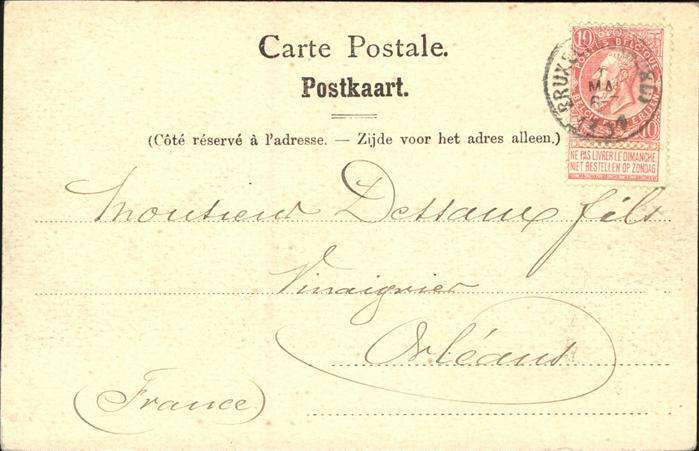 Carte Postale.
Postkaart.
(Côté réservé à l'adresse. — Zijde voor het adres alleen.)
10 10
NE PAS LIVRER LE DIMANCHE
NIET BESTELLEN OP ZONDAG
Monsieur Dessaux fils
Vinaigrier
Orléans
(France)